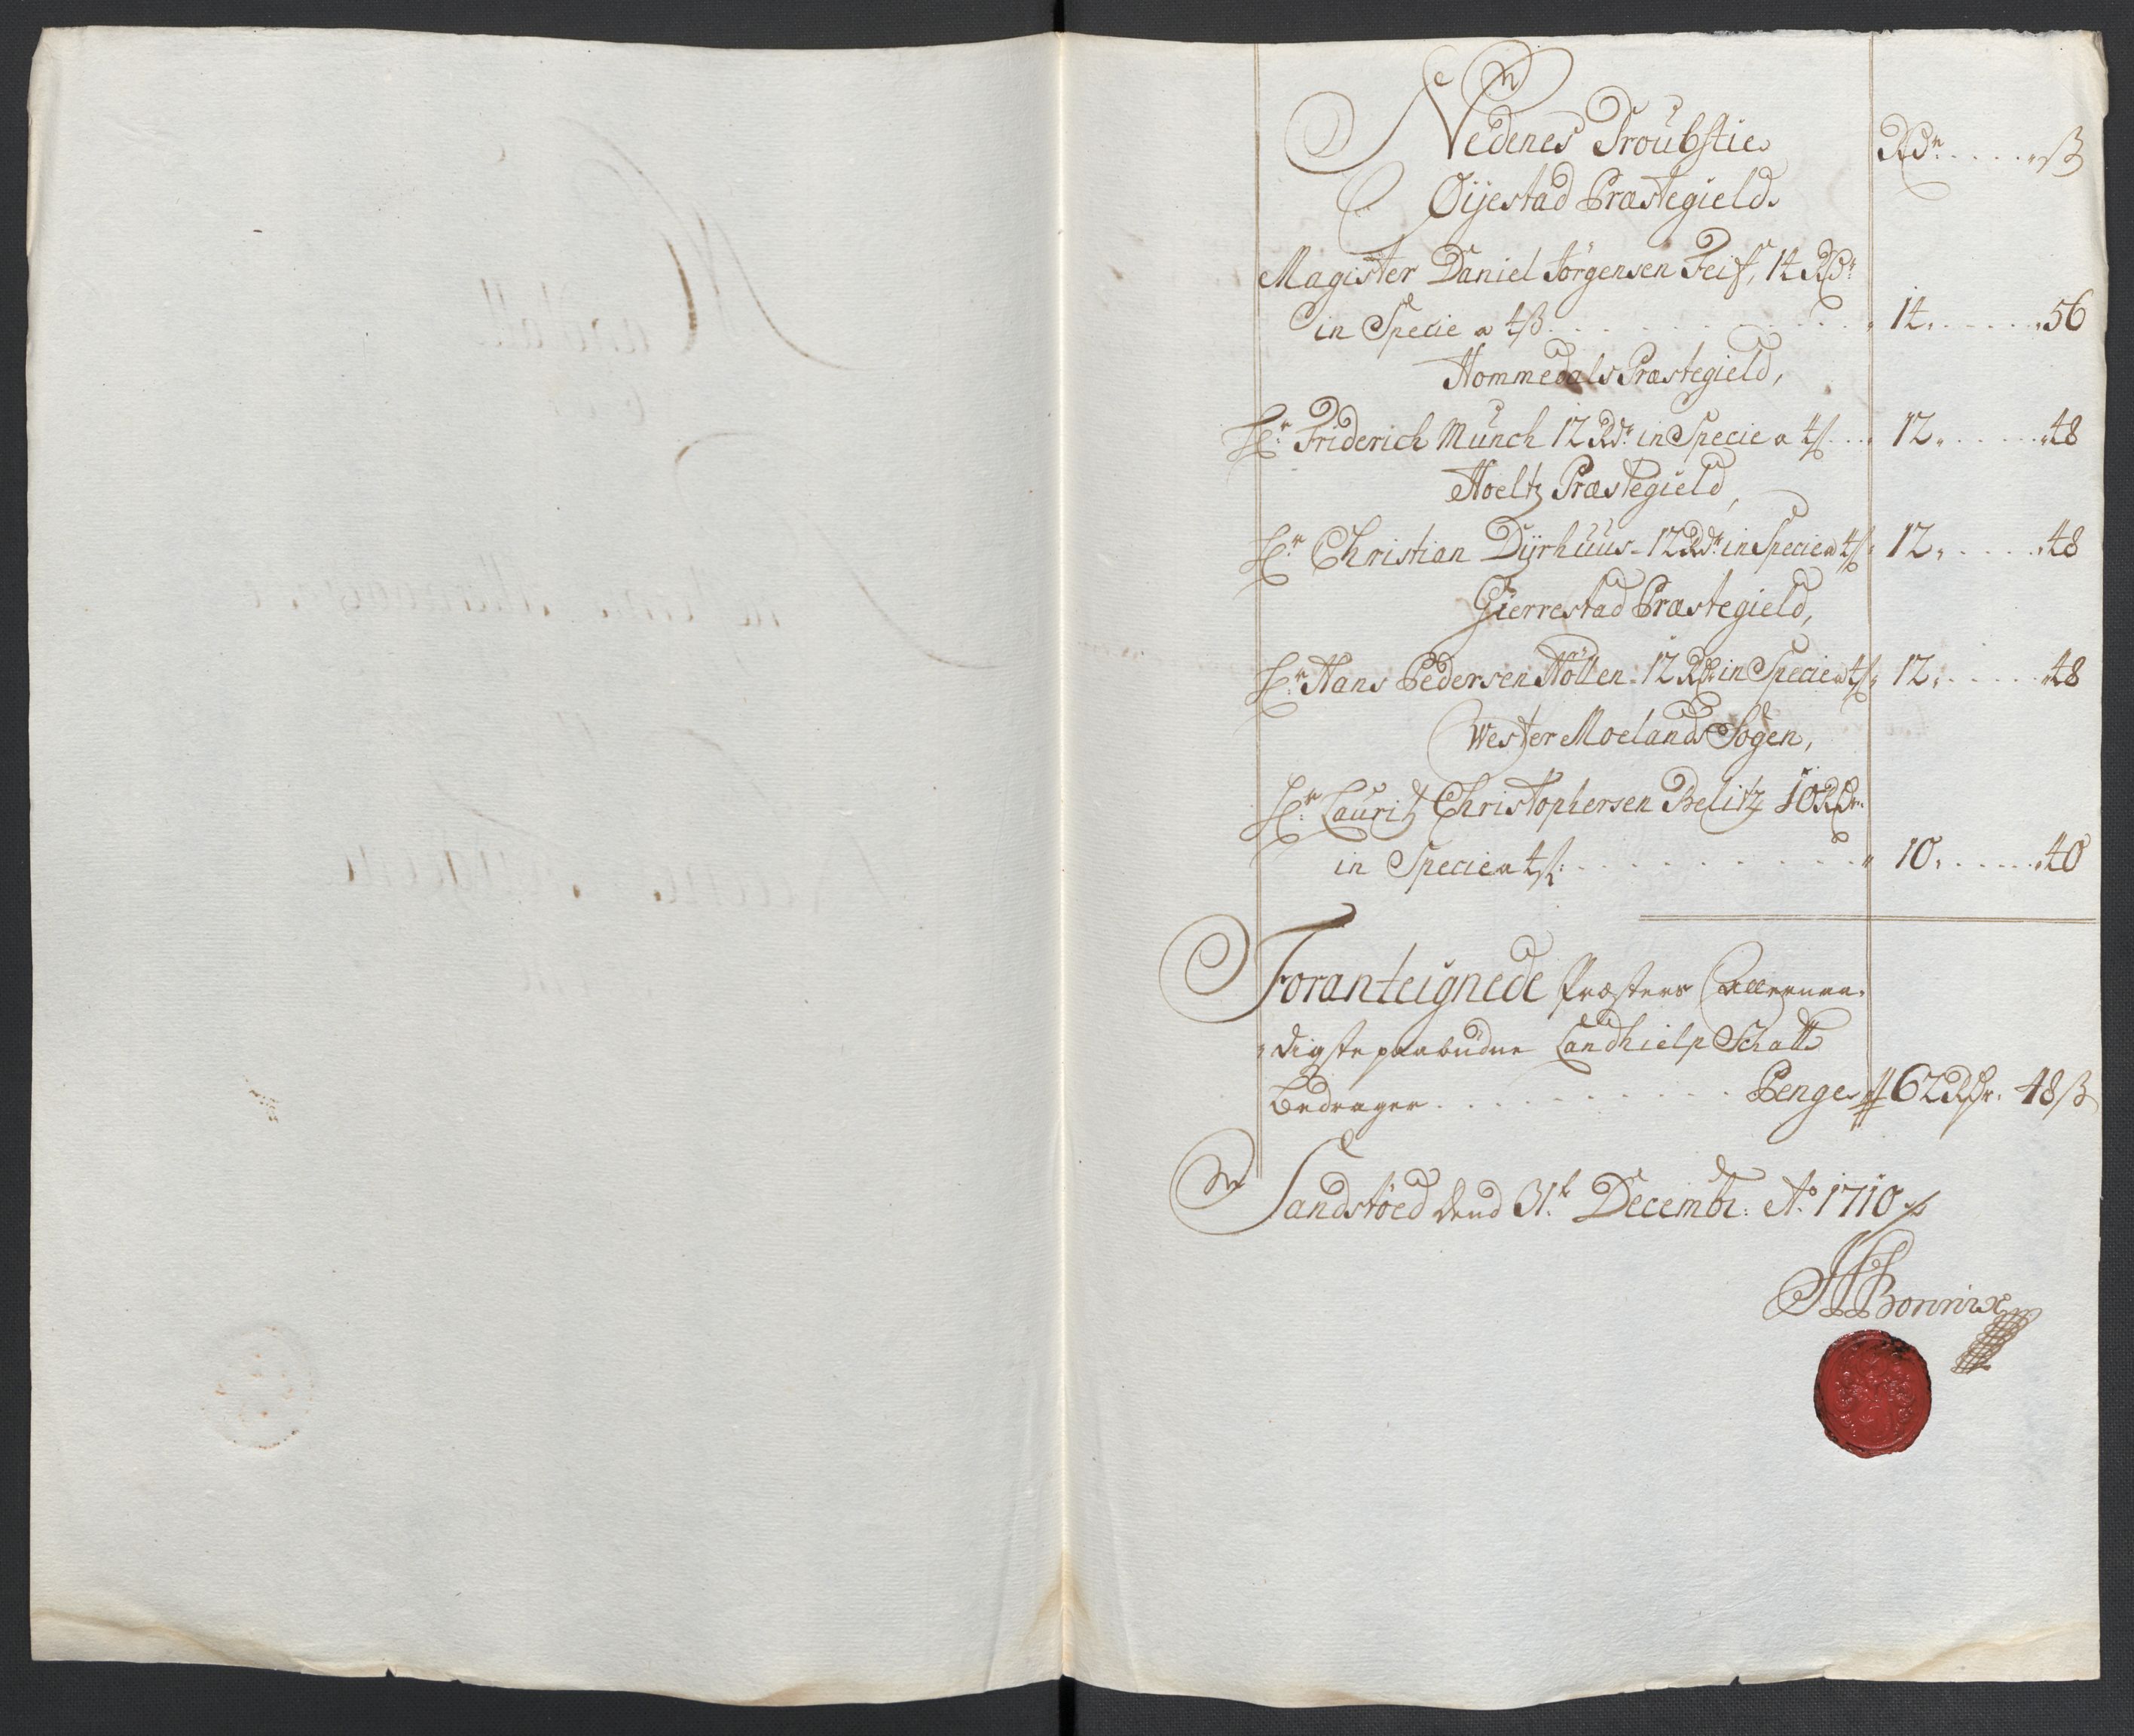 Nedenes Proubstie
Rdr. ß
Øijestad Præstegield
Magister Daniel Jörgensen Feif, 14 Rdr.
in Specie a 4ß 14 56
Hommedals Præstegield,
Hr. Friderich Münch 12 Rdr. in Specie a 4ß 12 48
Hoeltz Præstegield,
Hr. Christian Dyrhuus 12 Rdr. in Specie a 4ß 12 48
Gierrestad Præstegield,
Hr. Hans Pedersen 12 Rdr in Specie a 4ß 12 48
Wester Moelands Sogen,
Hr. Lauritz Christophersen Belitz 10 Rdr.
in Specie a 4ß 10 40
Foranteignede Præsters allernaa-
digste paabudne Landhielp Schatt
Bedrager Penge 62 Rdr. 48 ß
Sandstöed dend 31t. Decembr: Ao. 1710